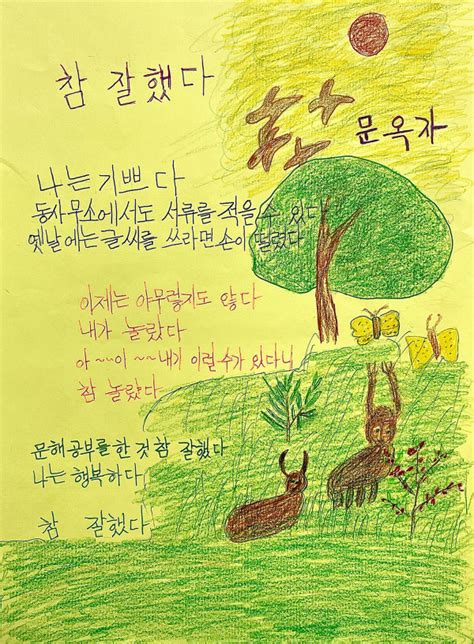 참 잘했다
문옥자
나는 기쁘다
동사무소에서도 서류를 적을 수 있다
옛날에는 글씨를 쓰라면 손이 떨렸다
이제는 아무렇지도 않다
내가 놀랐다
아~~이~~내가 이럴수가 있다니
참 놀랐다
문해공부를 한 것 참 잘했다
나는 행복하다
참 잘했다